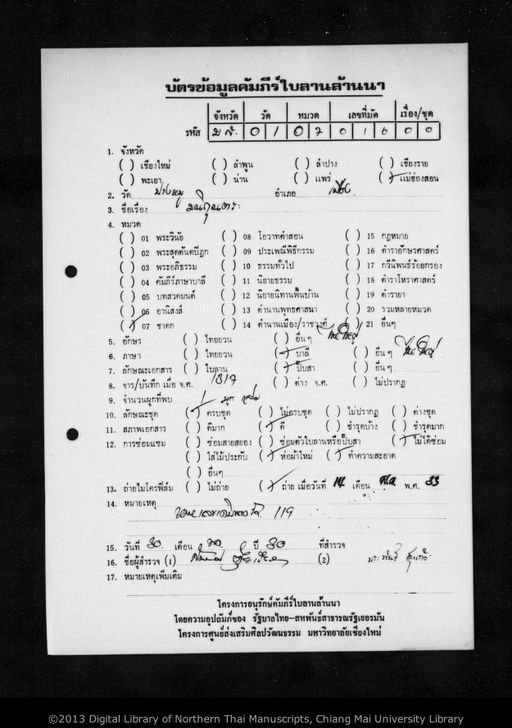 บัตรข้อมูลคัมภีร์ใบลานล้านนา
จังหวัด วัด หมวด เลขที่มัด เรื่อง/ชุด
รหัส ม ส. 0 1 0 7 0 1 6 0 0
1. จังหวัด
( ) เชียงใหม่ ( ) ลำพูน ( ) ลำปาง ( ) เชียงราย
( ) พะเยา ( ) น่าน ( ) แพร่ (/) แม่ฮ่องสอน
2. วัด อำเภอ เมือง
3. ชื่อเรื่อง
4. หมวด
( ) 01 พระวินัย ( ) 08 โอวาทคำสอน ( ) 15 กฎหมาย
( ) 02 พระสุตตันตปิฎก ( ) 09 ประเพณีพิธีกรรม ( ) 16 ตำราอักษรศาสตร์
( ) 03 พระอภิธรรม ( ) 10 ธรรมทั่วไป ( ) 17 กวีนิพนธ์ร้อยกรอง
( ) 04 คัมภีร์ภาษาบาลี ( ) 11 นิยายธรรม ( ) 18 ตำราโหราศาสตร์
( ) 05 บทสวดมนต์ ( ) 12 นิยายนิทานพื้นบ้าน ( ) 19 ตำรายา
( ) 06 อานิสงส์ ( ) 13 ตำนานพุทธศาสนา ( ) 20 รวมหลายหมวด
(/) 07 ชาดก ( ) 14 ตำนานเมือง/ราชวงศ์ ( ) 21 อื่นๆ
5. อักษร ( ) ไทยยวน ( ) อื่น ๆ ไทใหญ่
6. ภาษา ( ) ไทยยวน (/) บาลี ( ) อื่น ๆ ไทใหญ่
7. ลักษณะเอกสาร ( ) ใบลาน (/) พับสา ( ) อื่น ๆ
8. จาร/บันทึก เมื่อ จ.ศ. 1319 ( ) ต่าง จ.ศ. ( ) ไม่ปรากฏ
9. จำนวนผูกที่พบ ผูก
10. ลักษณะชุด (/) ครบชุด ( ) ไม่ครบชุด ( ) ไม่ปรากฏ ( ) ต่างชุด
11. สภาพเอกสาร ( ) ดีมาก (/) ดี ( ) ชำรุดบ้าง ( ) ชำรุดมาก
12. การซ่อมแซม ( ) ซ่อมสายสยอง ( ) ซ่อมตัวใบลานหรือปั๊บสา (/) ไม่ได้ซ่อม
( ) ใส่ไม้ประกับ (/) ห่อผ้าใหม่ (/) ทำความสะอาด
( ) อื่นๆ
13. ถ่ายไมโครฟิล์ม ( ) ไม่ถ่าย (/) ถ่าย เมื่อวันที่ เดือน พ.ศ. 33
14. หมายเหตุ
119
15. วันที่ 30 เดือน ปี 30 ที่สำรวจ
16. ชื่อผู้สำรวจ (1) (2)
17. หมายเหตุเพิ่มเติม
โครงการอนุรักษ์คัมภีร์ใบลานล้านนา
โดยความอุปถัมภ์ของ รัฐบาลไทย-สหพันธ์สาธารณรัฐเยอรมัน
โครงการศูนย์ส่งเสริมศิลปวัฒนธรรม มหาวิทยาลัยเชียงใหม่
©2013 Digital Library of Northern Thai Manuscripts, Chiang Mai University Library